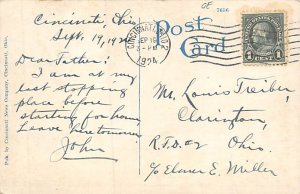 GE
7616
Post
Card
Cincinnati, Ohio
Sept. 19, 1924
Dear Father:
I am at my
last stopping
place before
starting for home.
Leave tomorrow
John
CINCINNATI, OHIO
SEP 19
8-PM
1924
1 CENT 1
Mr. Louis Treiber,
Clarington,
R.F.D. #2 Ohio.
c/o Elmer E. Miller
Pub. by Cincinnati News Company, Cincinnati, Ohio.